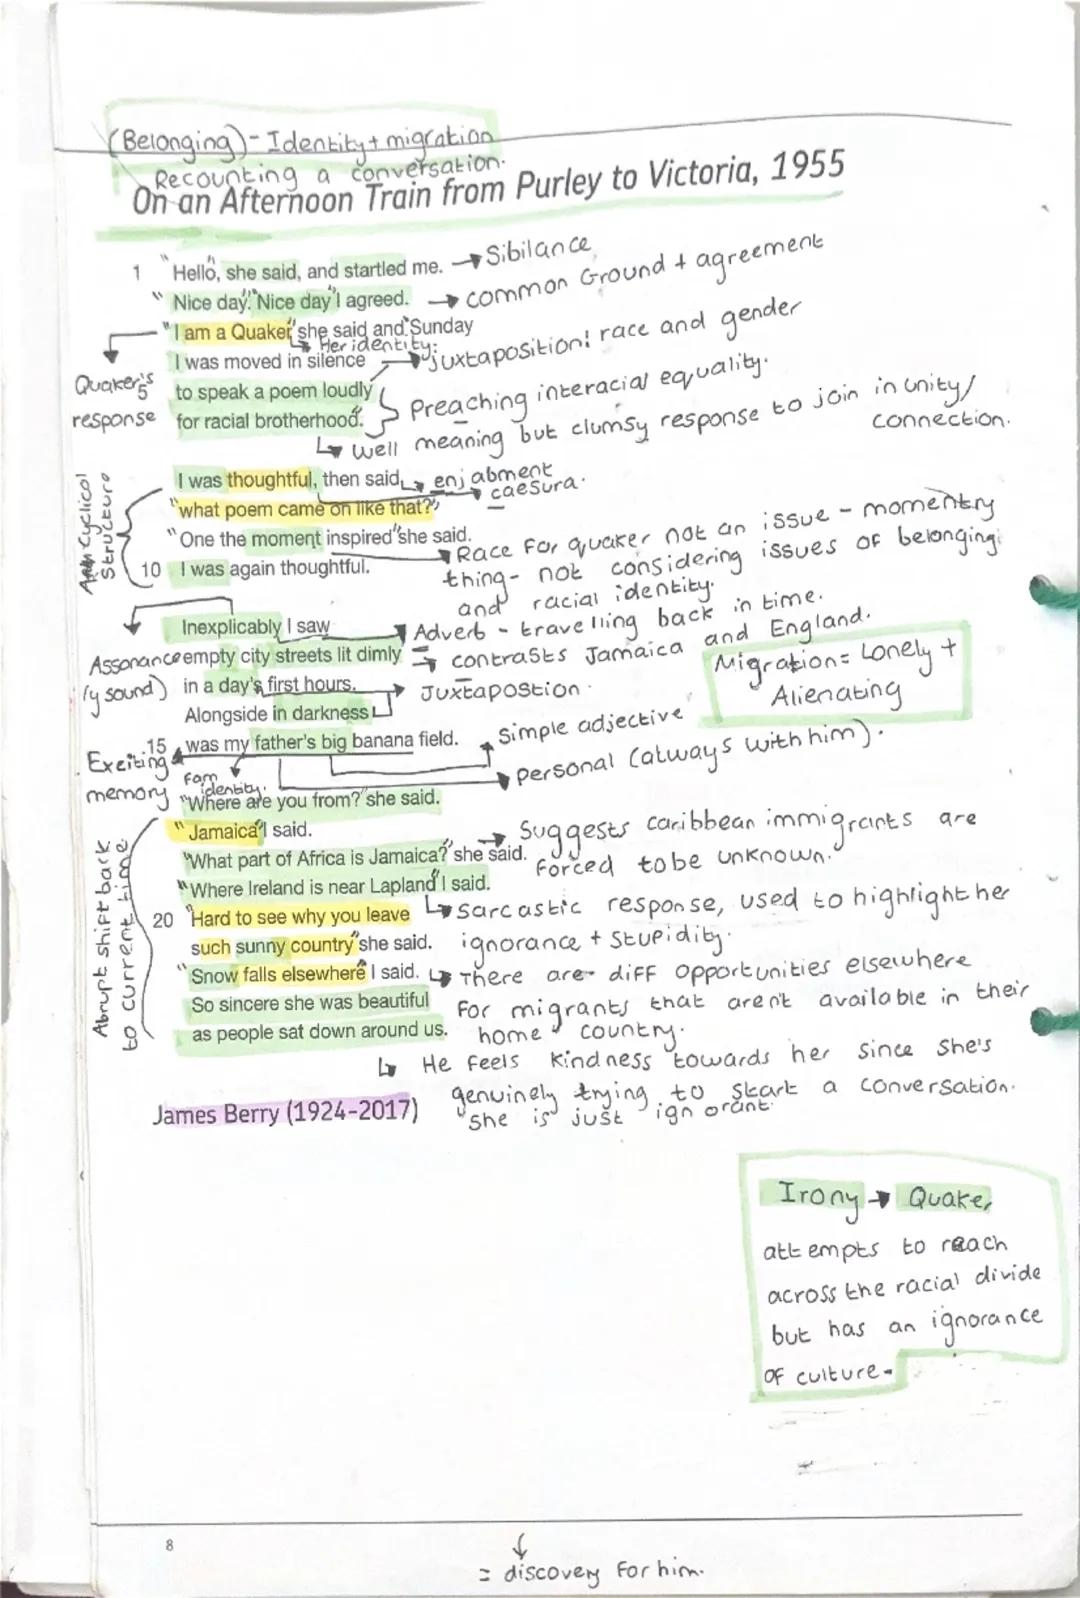 (Belonging) - Identity + migration
Recounting a conversation.
On an Afternoon Train from Purley to Victoria, 1955
1 "Hello," she said, and startled me. → Sibilance
"Nice day." "Nice day" I agreed. → common Ground + agreement
"I am a Quaker" she said and "Sunday
↳ Her identity:
I was moved in silence → juxtaposition: race and gender
Quaker's
response
5 to speak a poem loudly
for racial brotherhood."
Preaching interacial equality.
↳ well meaning but clumsy response to join in unity/
connection.
Cyclical
Structure
I was thoughtful, then said, → enjabment
→ caesura.
"what poem came on like that?"
"One the moment inspired" she said.
10 I was again thoughtful.
Race for quaker not an issue - momentry
thing - not considering issues of belonging
and racial identity.
Inexplicably I saw → Adverb - travelling back in time.
Assonance
(y sound)
empty city streets lit dimly → contrasts Jamaica and England.
in a day's first hours. → Juxtapostion.
Alongside in darkness
15 was my father's big banana field.
simple adjective
personal (always with him).
Migration = Lonely +
Alienating
Exciting
memory
fam
identity.
"Where are you from?" she said.
Abrupt shift back
to current time
"Jamaica" I said.
"What part of Africa is Jamaica?" she said. → Suggests caribbean immigrants are
forced to be unknown.
"Where Ireland is near Lapland" I said.
↳ Sarcastic response, used to highlight her
ignorance + stupidity.
20 "Hard to see why you leave
such sunny country" she said.
"Snow falls elsewhere" I said. ↳ There are diff opportunities elsewhere
for migrants that aren't available in their
home country.
So sincere she was beautiful
as people sat down around us.
↳ He feels kindness towards her since she's
genuinely trying to start a conversation.
she is just ignorant.
James Berry (1924-2017)
Irony → Quaker
attempts to reach
across the racial divide
but has an ignorance
of culture-
8
↓
= discovery for him.